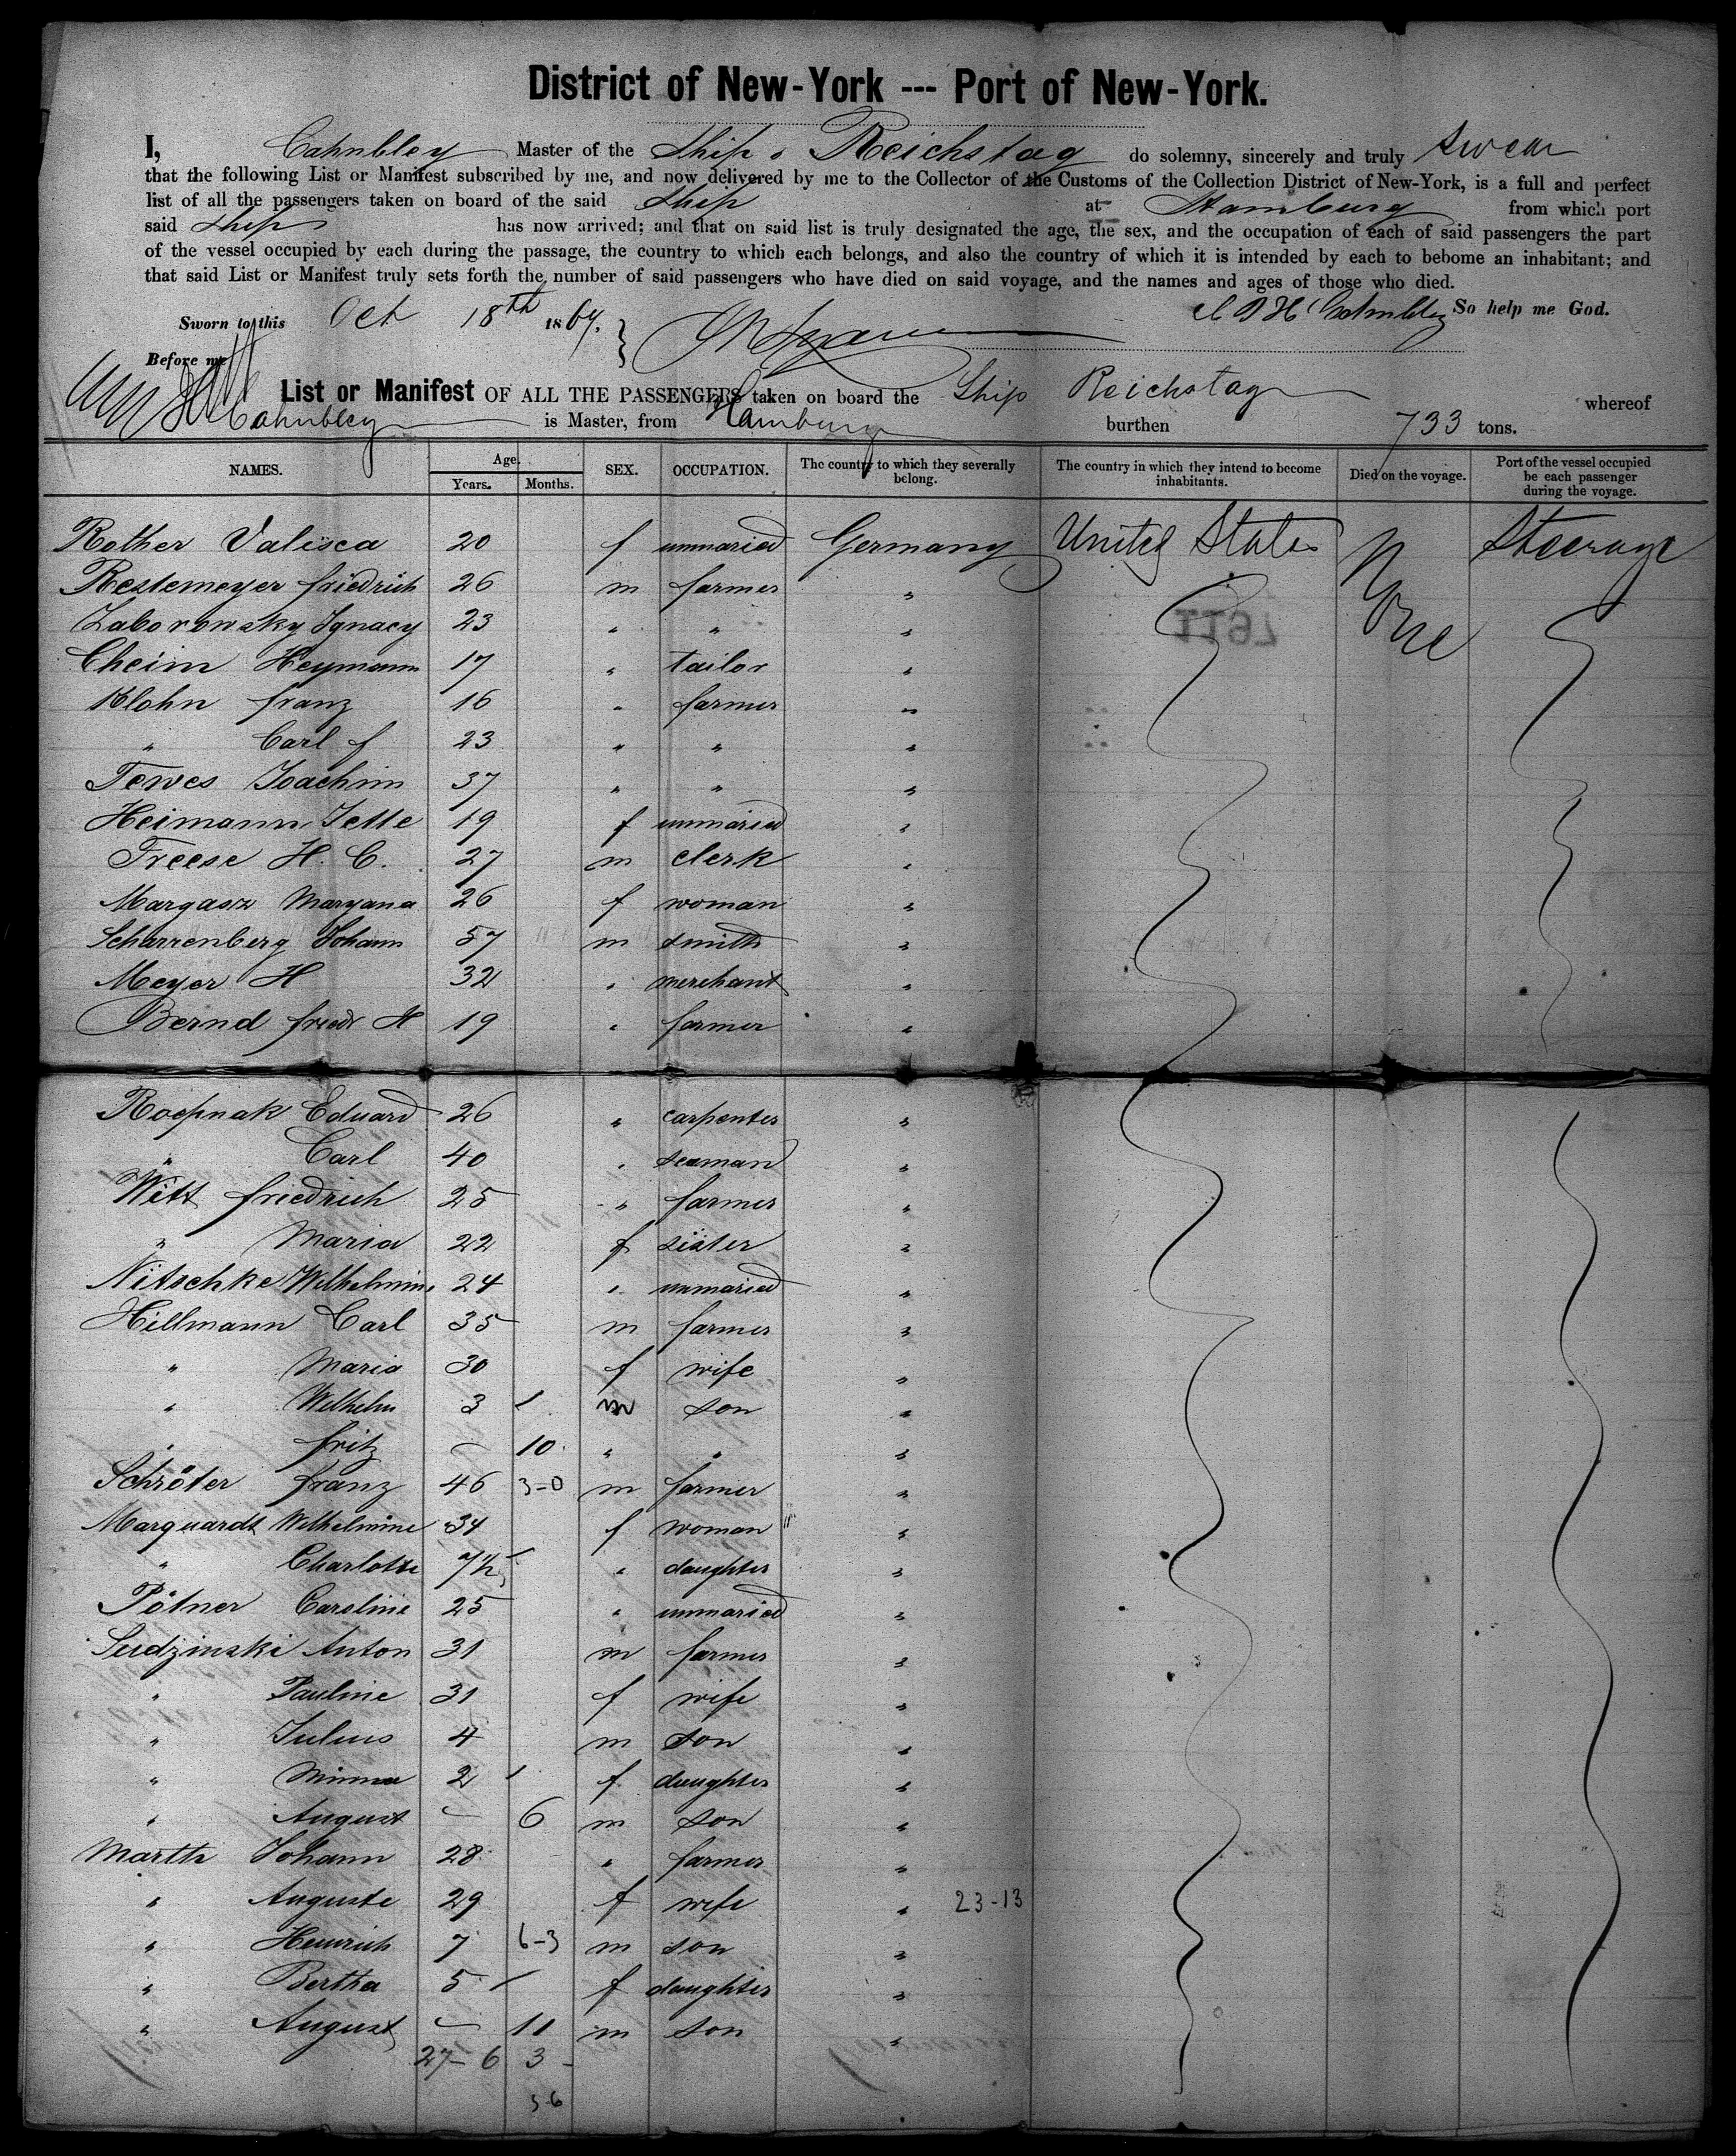 District of New-York --- Port of New-York.
I, Cahnbley Master of the Ship Reichstag do solemny, sincerely and truly swear
that the following List or Manifest subscribed by me, and now delivered by me to the Collector of the Customs of the Collection District of New-York, is a full and perfect
list of all the passengers taken on board of the said Ship at Hamburg from which port
said Ship has now arrived; and that on said list is truly designated the age, the sex, and the occupation of each of said passengers the part
of the vessel occupied by each during the passage, the country to which each belongs, and also the country of which it is intended by each to bebome an inhabitant; and
that said List or Manifest truly sets forth the number of said passengers who have died on said voyage, and the names and ages of those who died.
Cahnbley So help me God.
Sworn to this Oct 18th 1867.
Before me
List or Manifest OF ALL THE PASSENGERS taken on board the Ship Reichstag whereof
Cahnbley is Master, from Hamburg burthen 733 tons.
NAMES. Age. Years. Months. SEX. OCCUPATION. The country to which they severally belong. The country in which they intend to become inhabitants. Died on the voyage. Port of the vessel occupied be each passenger during the voyage.
Rother Valisca 20 f unmaried Germany United States None Steerage
Restemeyer friedrich 26 m farmer "
Zaborowsky Ignacy 23 " " "
Cheim Heymann 17 " tailor "
Klohn franz 16 " farmer "
" Carl f 23 " " "
Tewes Joachim 37 " " "
Heimann Jette 19 f unmaried "
Freese H. C. 27 m clerk "
Margasz Maryana 26 f woman "
Scharrenberg Johann 57 m smith "
Meyer H 32 " merchant "
Bernd friedr H 19 " farmer "
Roepnak Eduard 26 " carpenter "
" Carl 40 " seaman "
Witt friedrich 25 " farmer "
" Maria 22 f sister "
Nitschke Wilhelmine 24 " unmaried "
Hillmann Carl 35 m farmer "
" Maria 30 f wife "
" Wilhelm 3 m son "
" fritz - 10 " " "
Schröter franz 46 3-0 m farmer "
Marquardt Wilhelmine 34 f woman "
" Charlotte 7½ " daughter "
Pötner Caroline 25 " unmaried "
Sudzinski Anton 31 m farmer "
" Pauline 31 f wife "
" Julius 4 m son "
" Minna 2 f daughter "
" August - 6 m son "
Marth Johann 28 " farmer "
" Auguste 29 f wife " 23-13
" Heinrich 7 6-3 m son "
" Bertha 5 f daughter "
" August - 11 m son "
27-6 3-
3-6